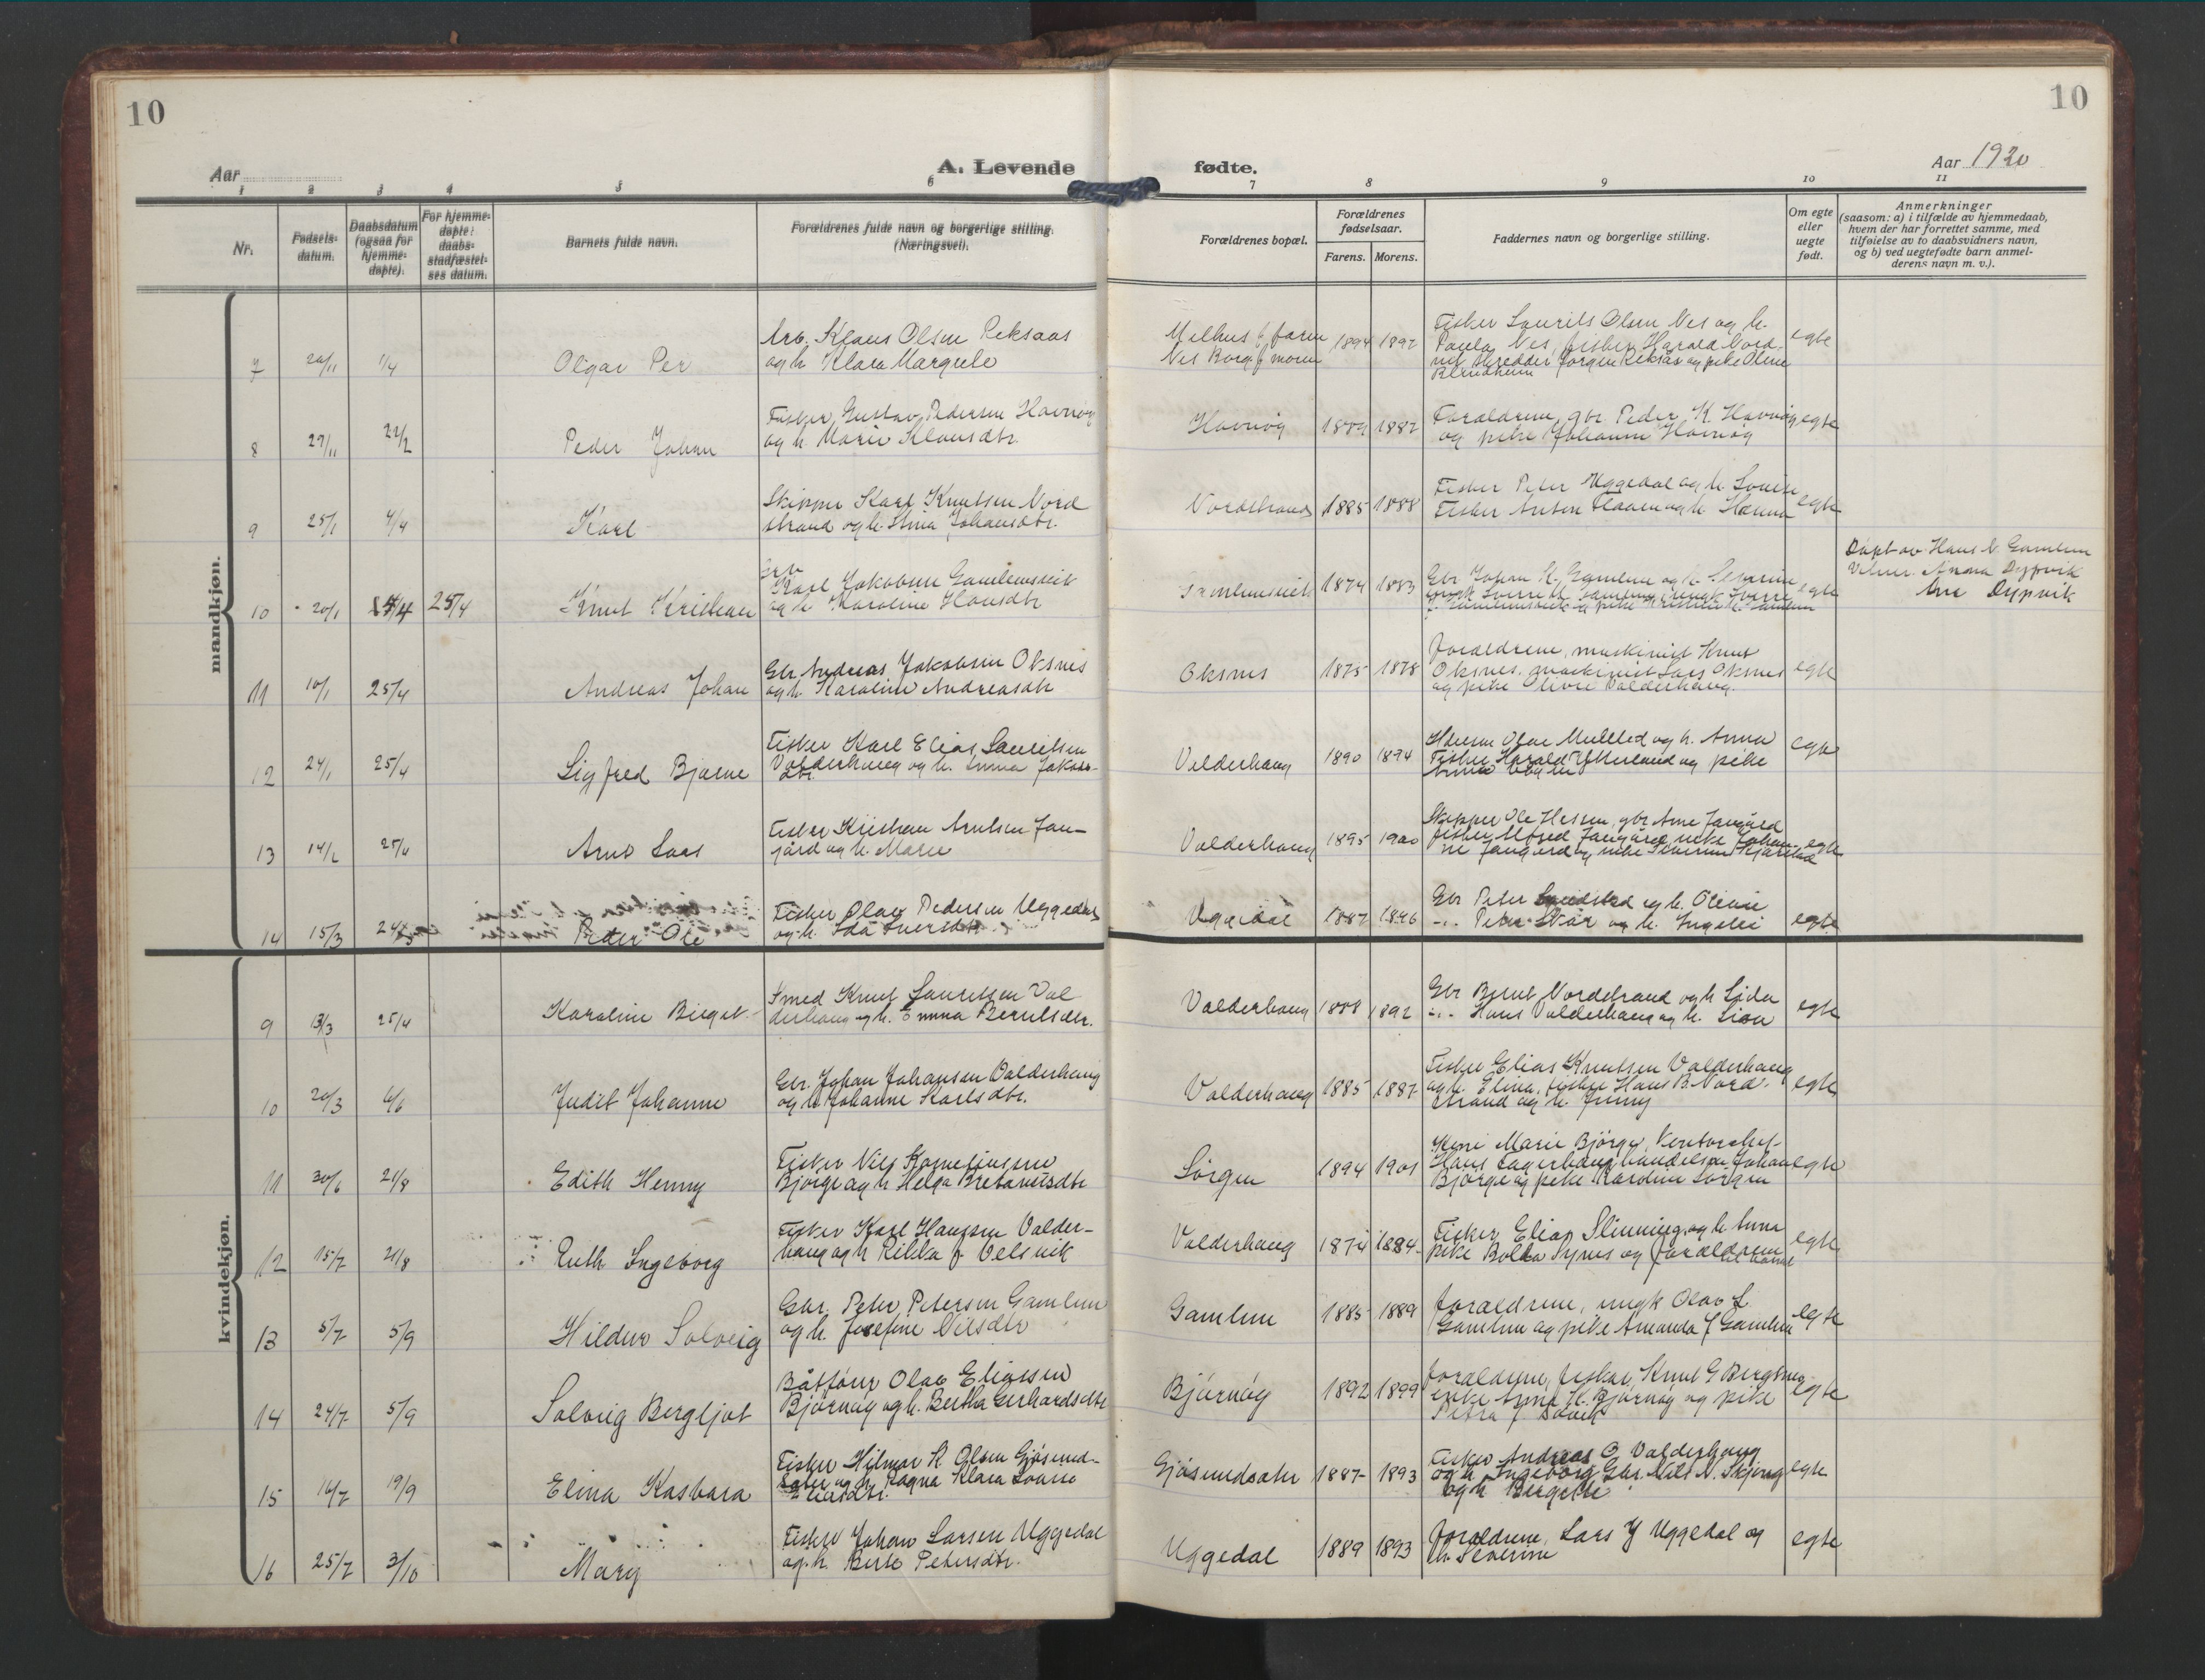 10
10
Aar
A. Levende
fødte.
Aar 1920
1 2 3 4 5 6 7 8 9 10 11
Nr.
Fødsels-
datum.
Daabsdatum
(ogsaa for
hjemme-
døpte).
For hjemme-
døpte:
daabs-
stadfæstel-
ses datum.
Barnets fulde navn.
Forældrenes fulde navn og borgerlige stilling.
(Næringsvei).
Forældrenes bopæl.
Forældrenes
fødselsaar.
Farens. Morens.
Faddernes navn og borgerlige stilling.
Om egte
eller
uegte
født.
Anmerkninger
(saasom: a) i tilfælde av hjemmedaab,
hvem der har forrettet samme, med
tilføielse av to daabsvidners navn,
og b) ved uegtefødte barn anmel-
derens navn m. v.).
mandkjøn.
7 20/11 1/4 Olgar Per
Arb. Klaus Olsen Reksaas
og h. Klara Margrete
Melhus f. faren
Nes Borg. f moren
1894 1892
Fisker Laurits Olsen Nes og h.
Paula Nes, fisker Harald Nord-
Jørgen Reksås og pike Oline
Blindheim
egte
8 27/11 22/2 Peder Johan
Fisker Gustav Pedersen Havnøy
og h. Marie Klausdtr.
Havnøy
1889 1882
Forældrene, gbr. Peder K. Havnøy
og pike Johanne Havnøy
egte
9 25/1 4/4 Karl
Skipper Karl Knutsen Nord
strand og h. Stina Johansdtr.
Nordstrand
1885 1888
Fisker Peter Uggedal og h. Louise
Fisker Anton og h. Hanna
egte
10 20/1 5/4 25/4 Knut Kristian
Gbr
Karl Jakobsen Gamlemsveit
og h. Karoline Hansdtr
Gamlemsveit
1874 1883
Gbr Johan H. Gamlem og h. Severine
egte
Døpt av Hans N. Gamlem
Vitner. Anna Dypvik
Ane Dypvik
11 10/1 25/4 Andreas Johan
Gbr Andreas Jakobsen Oksnes
og h. Karoline Andreasdtr
Oksnes
1875 1878
Forældrene, maskinist Knut
Oksnes, maskinist Lars Oksnes
og pike Olivie Valderhaug.
egte
12 24/1 25/4 Sigfred Bjarne
Fisker Karl Elias Lauritsen
Valderhaug og h. Anna Jakobs-
dtr.
Valderhaug
1890 1894
Olav Mulelid og h. Anna
Fisker Harald Ytterland og pike
egte
13 14/2 25/4 Arne Lars
Fisker Kristian Arntsen Jan-
gård og h. Marie
Valderhaug
1895 1900
Skipper Ole Hessen, gbr. Arne Jangård
fisker Alfred Jangård, pike Johan-
ne Jangård og pike Severine Kjærstad
egte
14 15/3 Peder Ole
Fisker Olav Pedersen Uggedal
og h. Ida Iversdtr.
Uggedal
1887 1896
Gbr Peter og h. Olivie
-"- Peter Skår og h. Ingelei
egte
kvindekjøn.
9 13/3 25/4 Karoline Birgit
Smed Knut Lauritsen Val
derhaug og h. Emma Berntsdtr.
Valderhaug
1888 1892
Gbr Bernt Nordstrand og h. Lida
-"- Hans Valderhaug og h. Lina
egte
10 20/3 6/6 Judit Johanne
Gbr. Johan Johansen Valderhaug
og h. Johanne Karlsdtr.
Valderhaug
1885 1887
Fisker Elias Knutsen Valderhaug
og h. Elina, fisker Hans B. Nord-
strand og h. Jenny
egte
11 30/6 21/8 Edith Henny
Fisker Nils Korneliussen
Bjørge og h. Helga Bretanusdtr
Sørgen
1894 1901
Marie Bjørge, Kontorchef
Hans Lagerhaug, handelsm. Johan
Bjørge og pike Karoline Sørgen
egte
12 15/7 21/8 Ruth Ingeborg
Fisker Karl Hanssen Valder-
haug og h. Rikka f. Velsvik
Valderhaug
1874 1884
Fisker Elias Slinning og h. Anna
pike Bolla Synes og forældrene
egte
13 5/7 5/9 Hildur Solveig
Gbr. Peter Petersen Gamlem
og h. Josefine Nilsdtr
Gamlem
1885 1889
Forældrene, ungk Olav L.
Gamlem og pike Amanda J Gamlem
egte
14 24/7 5/9 Solveig Bergljot
Båtfører Olav Eliassen
Bjørnøy og h. Bertha Gerhardsdtr
Bjørnøy
1892 1899
Forældrene, fisker Knut G Bergsnes
enke Anna K. Bjørnøy og pike
Petra J
egte
15 16/7 19/9 Elina Kasbara
Fisker Hilmar K. Olsen Gjøsund-
sæter og h. Ragna Klara Lovise
Eliasdtr.
Gjøsundsæter
1887 1893
Fisker Andreas O. Valderhaug
og h. Ingeborg Gbr. Nils N. Skjong
og h. Bergitte
egte
16 25/7 3/10 Mary
Fisker Johan Larsen Uggedal
og h. Berte Petersdtr.
Uggedal
1889 1893
Forældrene, Lars J Uggedal og
h. Severine
egte